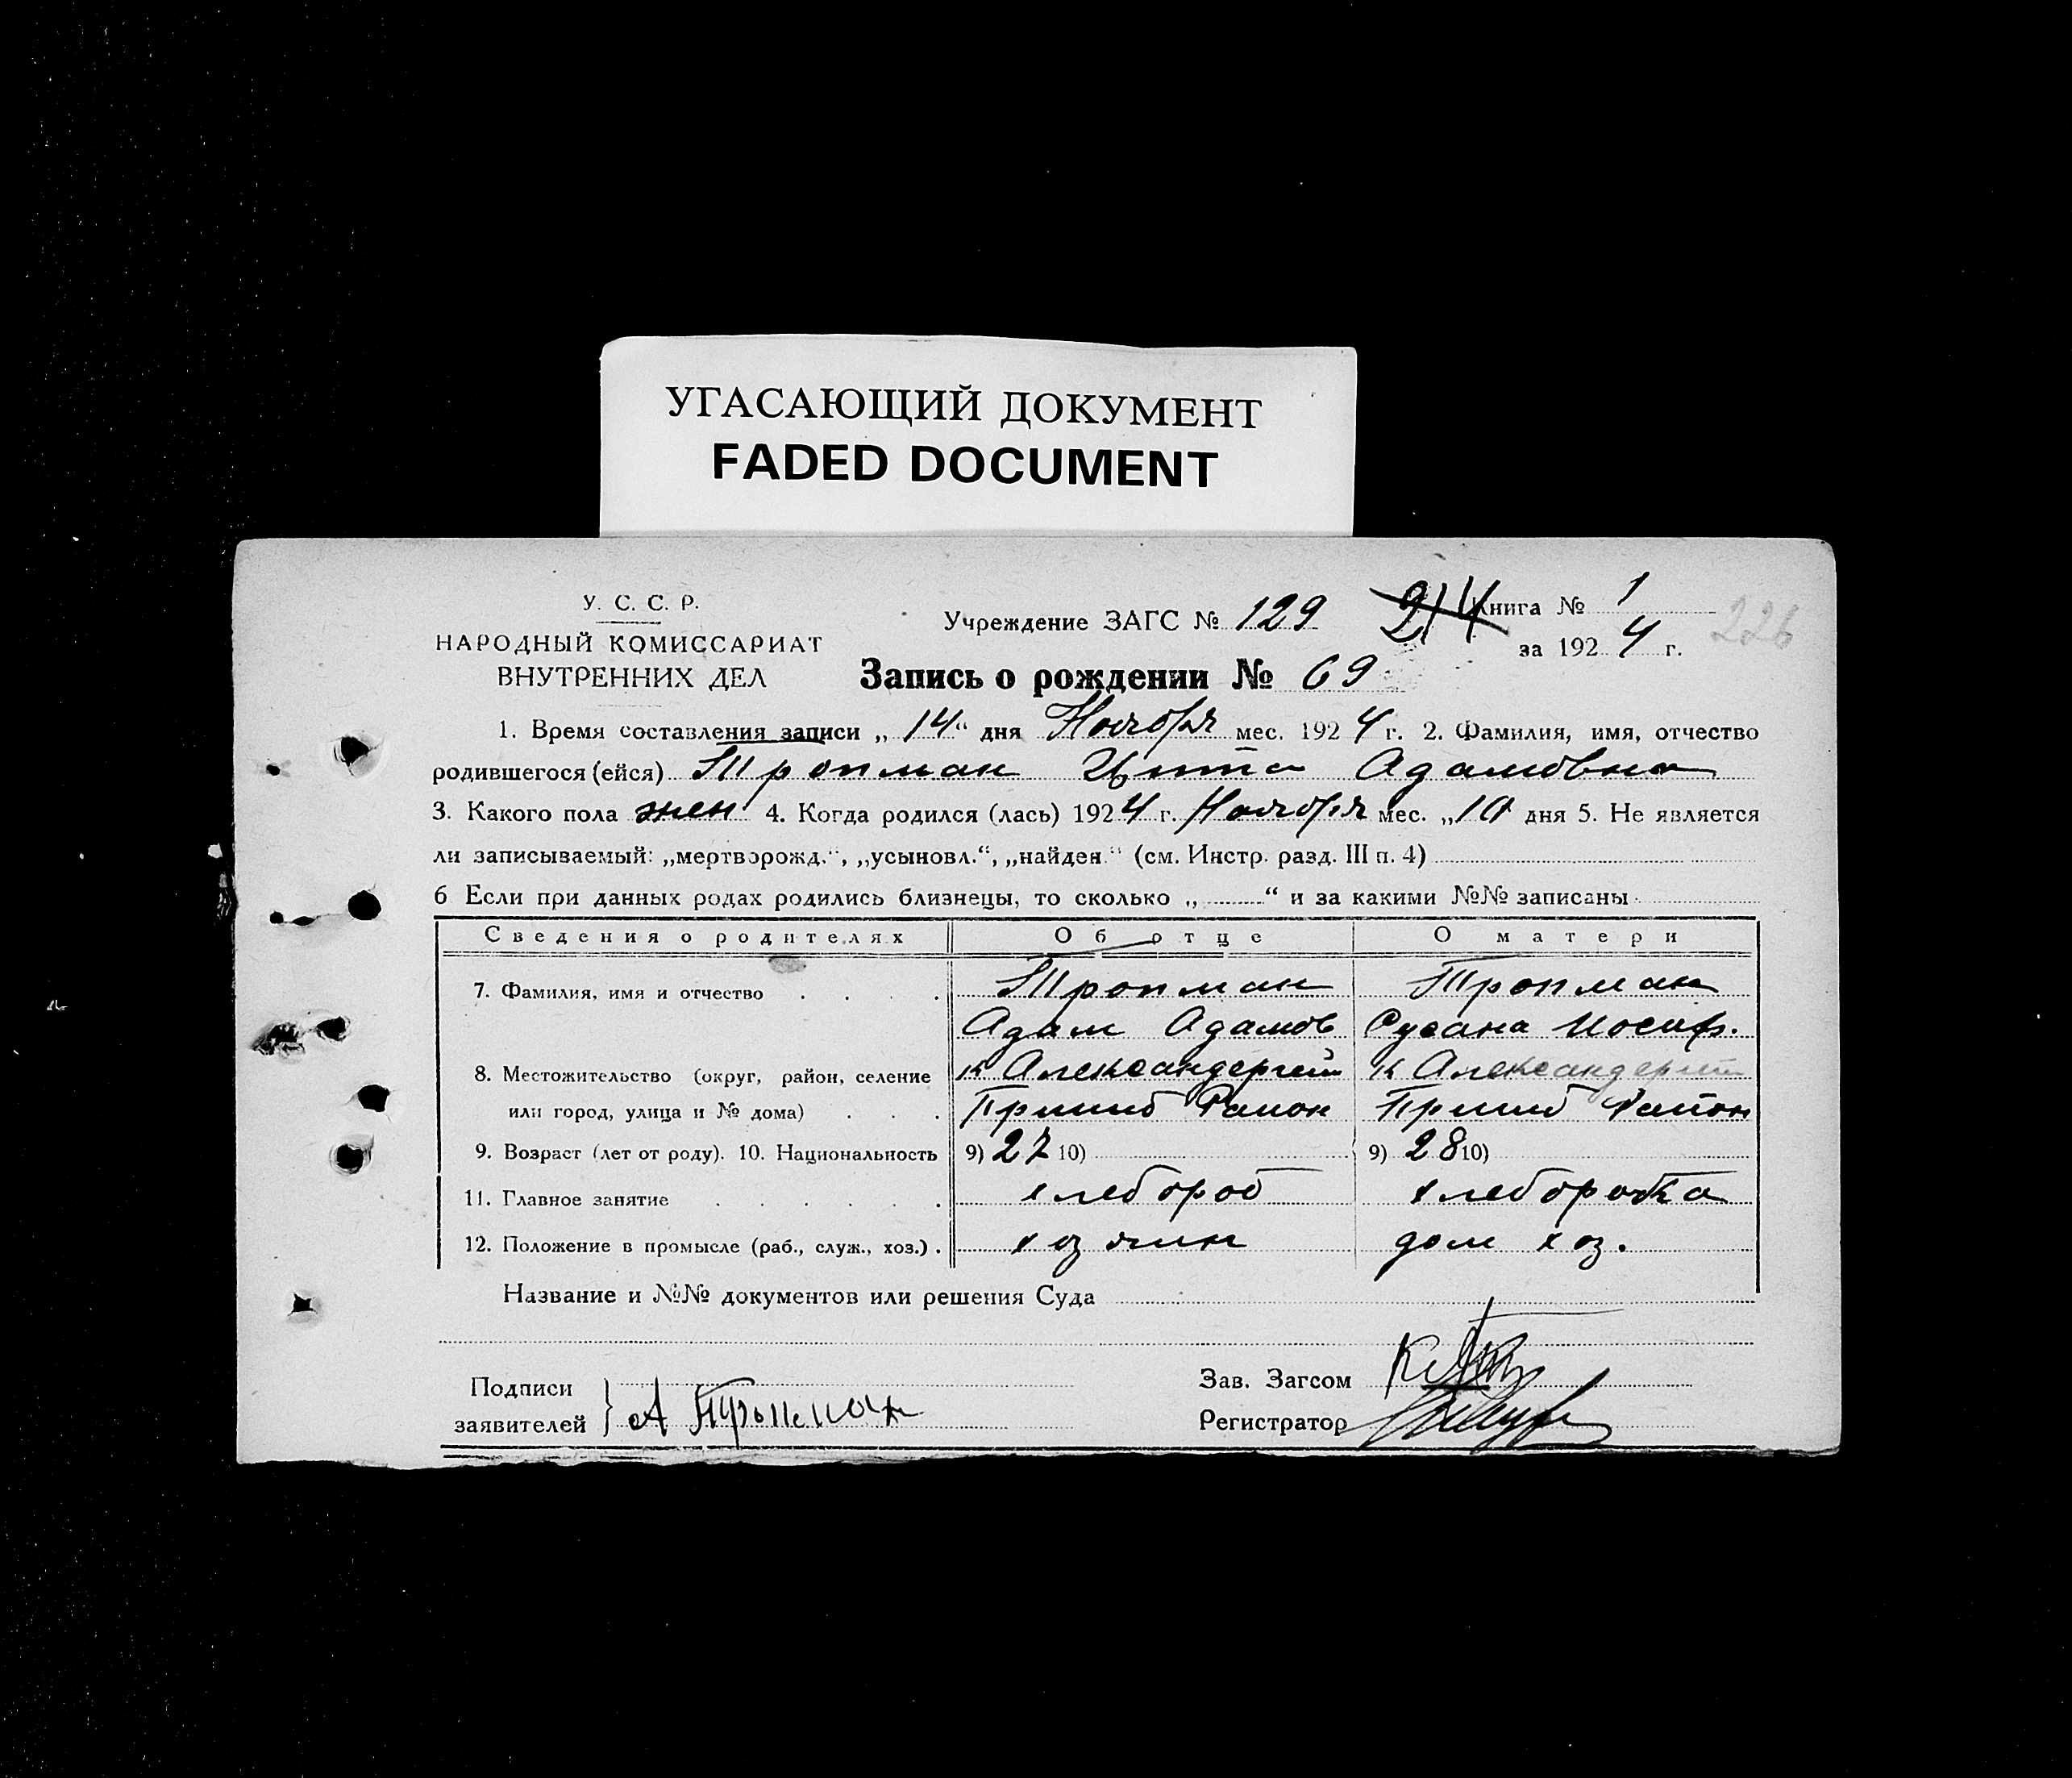 УГАСАЮЩИЙ ДОКУМЕНТ
FADED DOCUMENT
У. С. С. Р.
НАРОДНЫЙ КОМИССАРИАТ
ВНУТРЕННИХ ДЕЛ
Учреждение ЗАГС № 129 214 Книга № 1
за 1924 г. 226
Запись о рождении № 69
1. Время составления записи „14“ дня Ноября мес. 1924 г. 2. Фамилия, имя, отчество
родившегося (ейся) Тропман Адамовна
3. Какого пола жен 4. Когда родился (лась) 1924 г. Ноября мес. „10 дня 5. Не является
ли записываемый: „мертворожд.“, „усыновл.“, „найден“ (см. Инстр. разд. III п. 4)
6 Если при данных родах родились близнецы, то сколько „ “ и за какими №№ записаны
Сведения о родителях Об отце О матери
7. Фамилия, имя и отчество Тропман Тропман
Адам Адамов Сусана Иосиф.
8. Местожительство (округ, район, селение к Александергейм к Александергейм
или город, улица и № дома) Пришиб Район Пришиб Район
9. Возраст (лет от роду). 10. Национальность 9) 27 10) 9) 28 10)
11. Главное занятие хлебороб хлеборобка
12. Положение в промысле (раб., служ., хоз.) хозяин дом хоз.
Название и №№ документов или решения Суда
Подписи
заявителей А Тропман
Зав. Загсом
Регистратор